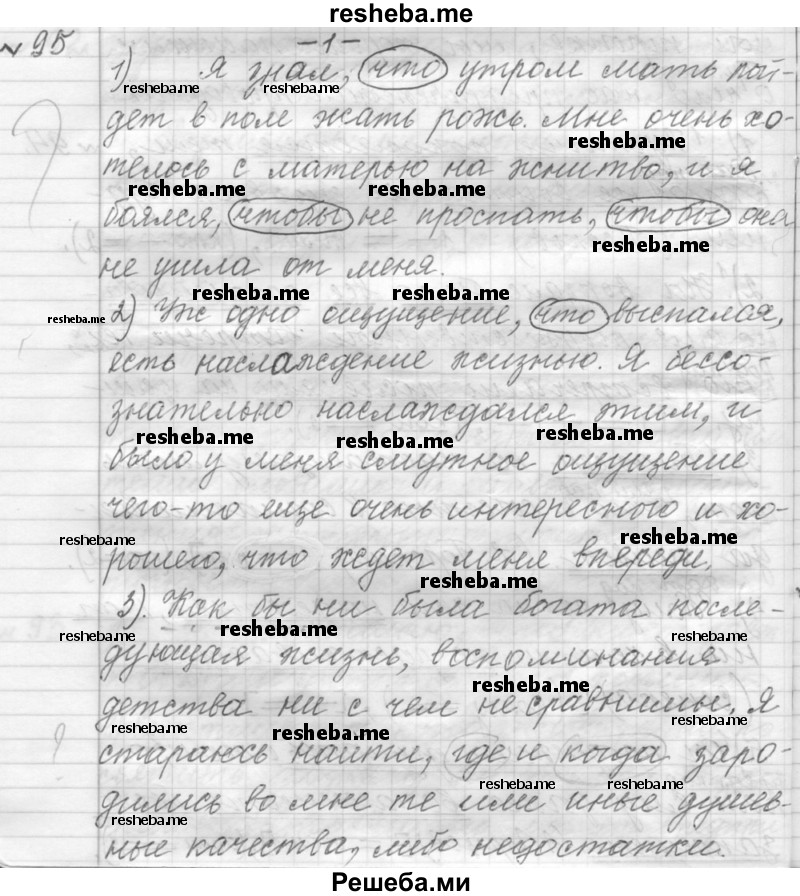 resheba.me
№ 95
-1-
1) Я знал, что утром мать пой-
resheba.me resheba.me
дет в поле жать рожь. Мне очень хо-
resheba.me
телось с матерью на жнитво, и я
resheba.me resheba.me
боялся, чтобы не проспать, чтобы она
resheba.me
не ушла от меня.
resheba.me resheba.me
resheba.me 2) Уж одно ощущение, что выспался,
есть наслаждение жизнью. Я бессо-
знательно наслаждался этим, и
resheba.me resheba.me resheba.me
было у меня смутное ощущение
чего-то еще очень интересного и хо-
resheba.me resheba.me
рошего, что ждет меня впереди.
resheba.me
3). Как бы ни была богата после-
resheba.me resheba.me resheba.me
дующая жизнь, воспоминания
resheba.me
детства ни с чем не сравнимы. Я
resheba.me resheba.me resheba.me
стараюсь найти, где и когда заро-
resheba.me resheba.me
дились во мне те или иные душев-
resheba.me
ные качества, либо недостатки.
Решеба.ми